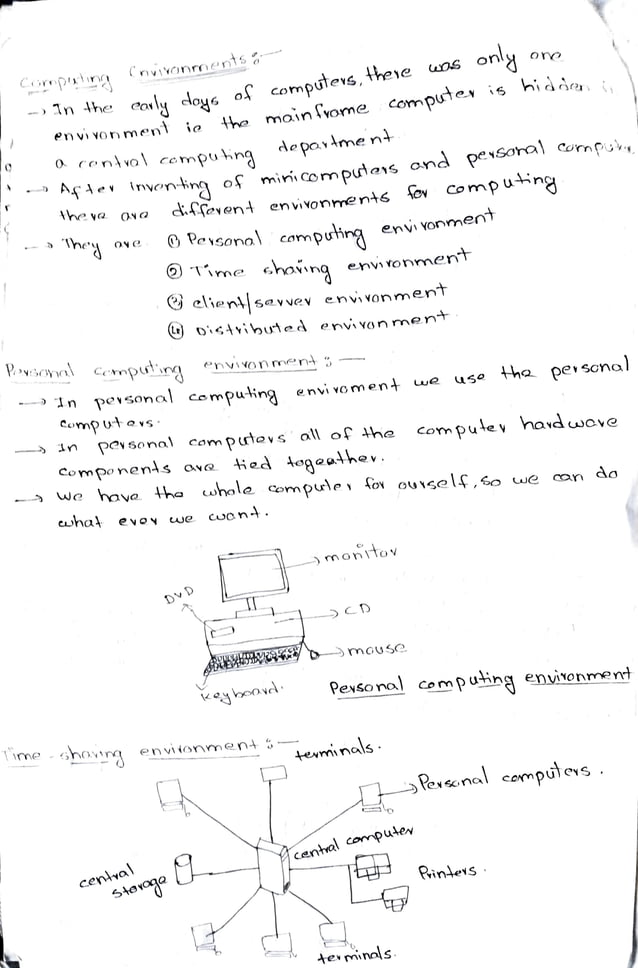 Computing Environments:-
→ In the early days of computers, there was only one
environment ie the mainframe computer is hidden in
a central computing department
→ After inventing of minicomputers and personal computer
there are different environments for computing
→ They are ① Personal computing environment
② Time sharing environment
③ client/server environment
④ Distributed environment
Personal computing environment:-
→ In personal computing enviroment we use the personal
computers.
→ In personal computers all of the computer hardware
components are tied togeather.
→ we have the whole computer for ourself, so we can do
what ever we want.
monitor
DVD
CD
mouse
Keyboard.
Personal computing environment
Time-sharing environment:-
terminals.
Personal computers.
central computer
central
storage
Printers.
terminals.